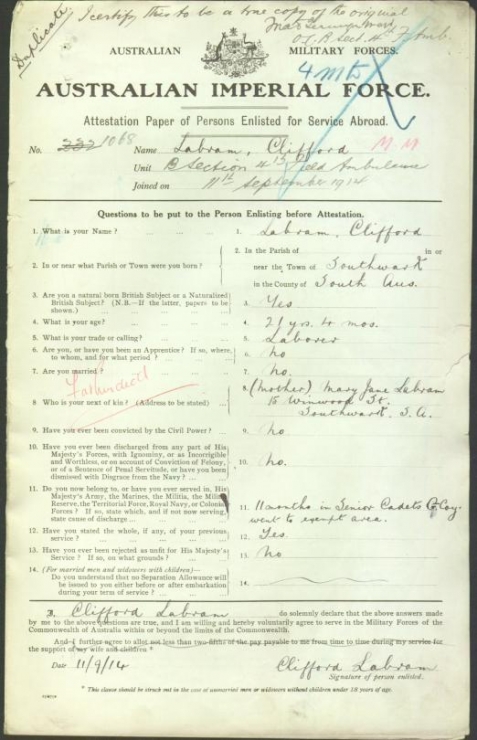 Duplicate
I certify this to be a true copy of the original
AUSTRALIAN MILITARY FORCES.
4 mts
AUSTRALIAN IMPERIAL FORCE.
Attestation Paper of Persons Enlisted for Service Abroad.
No. 1068 Name Labram, Clifford M.M
Unit B Section 4th Field Ambulance
Joined on 11th September 1914
Questions to be put to the Person Enlisting before Attestation.
1. What is your Name? ... 1. Labram, Clifford
2. In or near what Parish or Town were you born? ... 2. In the Parish of in or
near the Town of Southwark
in the County of South Aus.
3. Are you a natural born British Subject or a Naturalized
British Subject? (N.B.—If the latter, papers to be
shown.) ... 3. Yes
4. What is your age? ... 4. 21 yrs. 4 mos.
5. What is your trade or calling? ... 5. Laborer
6. Are you, or have you been an Apprentice? If so, where,
to whom, and for what period? ... 6. No
7. Are you married? ... 7. No.
Father dead
8. Who is your next of kin? (Address to be stated) ... 8. (Mother) Mary Jane Labram
15 Winwood St.
Southwark. S.A.
9. Have you ever been convicted by the Civil Power? ... 9. No
10. Have you ever been discharged from any part of His
Majesty's Forces, with Ignominy, or as Incorrigible
and Worthless, or on account of Conviction of Felony,
or of a Sentence of Penal Servitude, or have you been
dismissed with Disgrace from the Navy? ... 10. No.
11. Do you now belong to, or have you ever served in, His
Majesty's Army, the Marines, the Militia, the Militia
Reserve, the Territorial Force, Royal Navy, or Colonial
Forces? If so, state which, and if not now serving,
state cause of discharge ... 11. 11 months in Senior Cadets Coy.
went to exempt area.
12. Have you stated the whole, if any, of your previous
service? ... 12. Yes
13. Have you ever been rejected as unfit for His Majesty's
Service? If so, on what grounds? ... 13. No
14. (For married men and widowers with children)—
Do you understand that no Separation Allowance will
be issued to you either before or after embarkation
during your term of service? ... 14.
I, Clifford Labram do solemnly declare that the above answers made
by me to the above questions are true, and I am willing and hereby voluntarily agree to serve in the Military Forces of the
Commonwealth of Australia within or beyond the limits of the Commonwealth.
And I further agree to allot not less than two-fifths of the pay payable to me from time to time during my service for
the support of my wife and children.*
Date 11/9/14 Clifford Labram
Signature of person enlisted.
* This clause should be struck out in the case of unmarried men or widowers without children under 18 years of age.